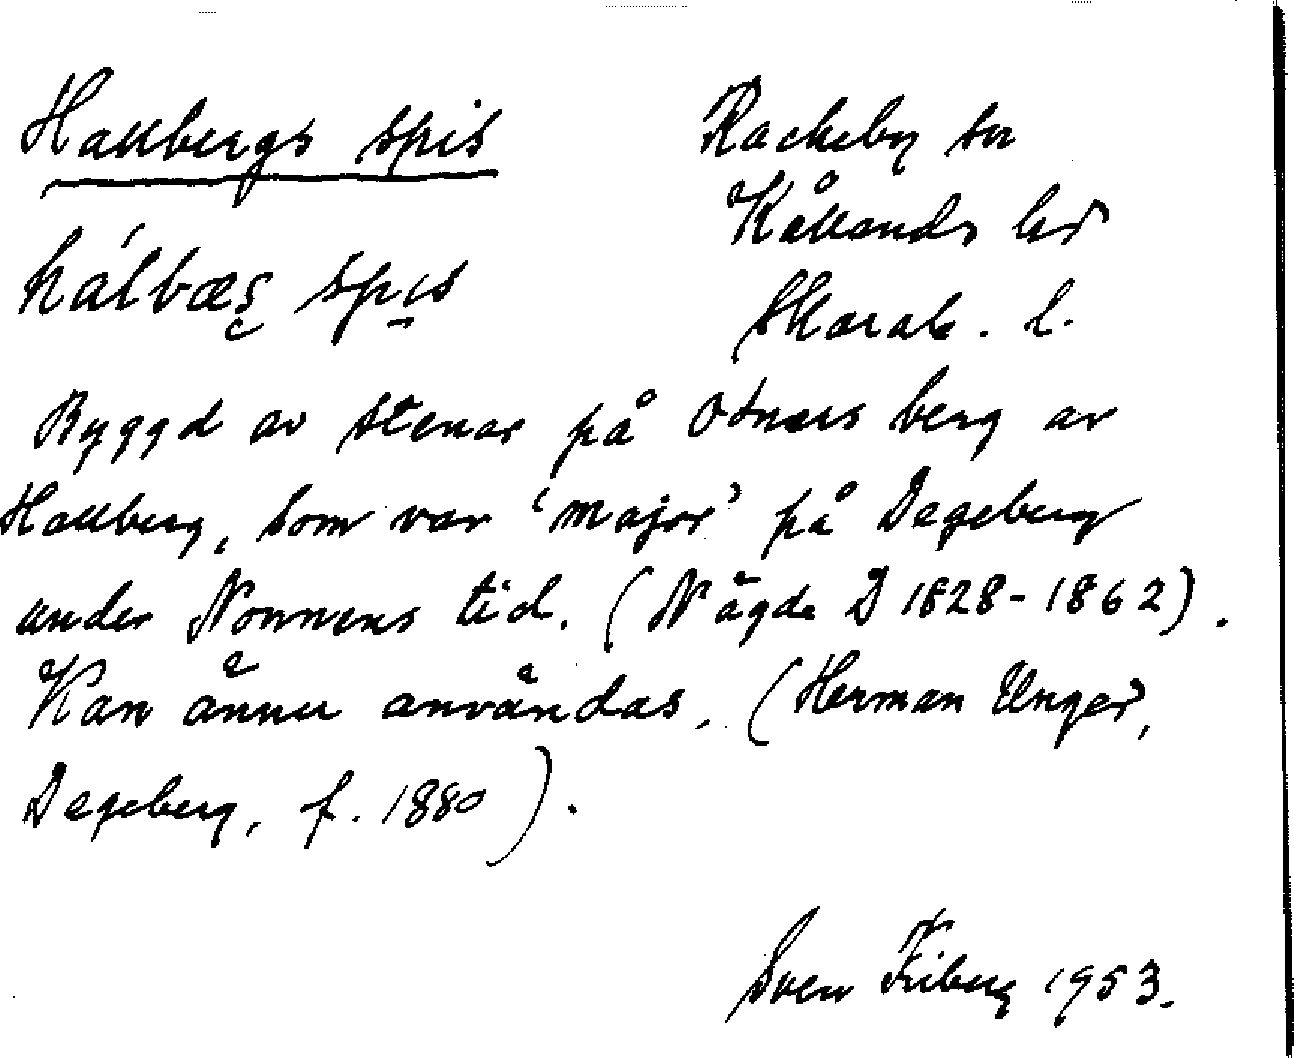 Hallbergs spis
Rackeby sn
Kållands hd
hálbæş spıs
Skarab. l.
Byggd av stenar på Otnæs berg av
Hallberg, som var 'major' på Degeberg
under Nonnens tid. (N ägde D 1828-1862).
Kan ännu användas. (Herman Unger,
Degeberg, f. 1880).
Sven Friberg 1953.